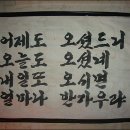 어제도 오셨드니
오늘도 오셨네
내일또 오시면
얼마나 반가우랴